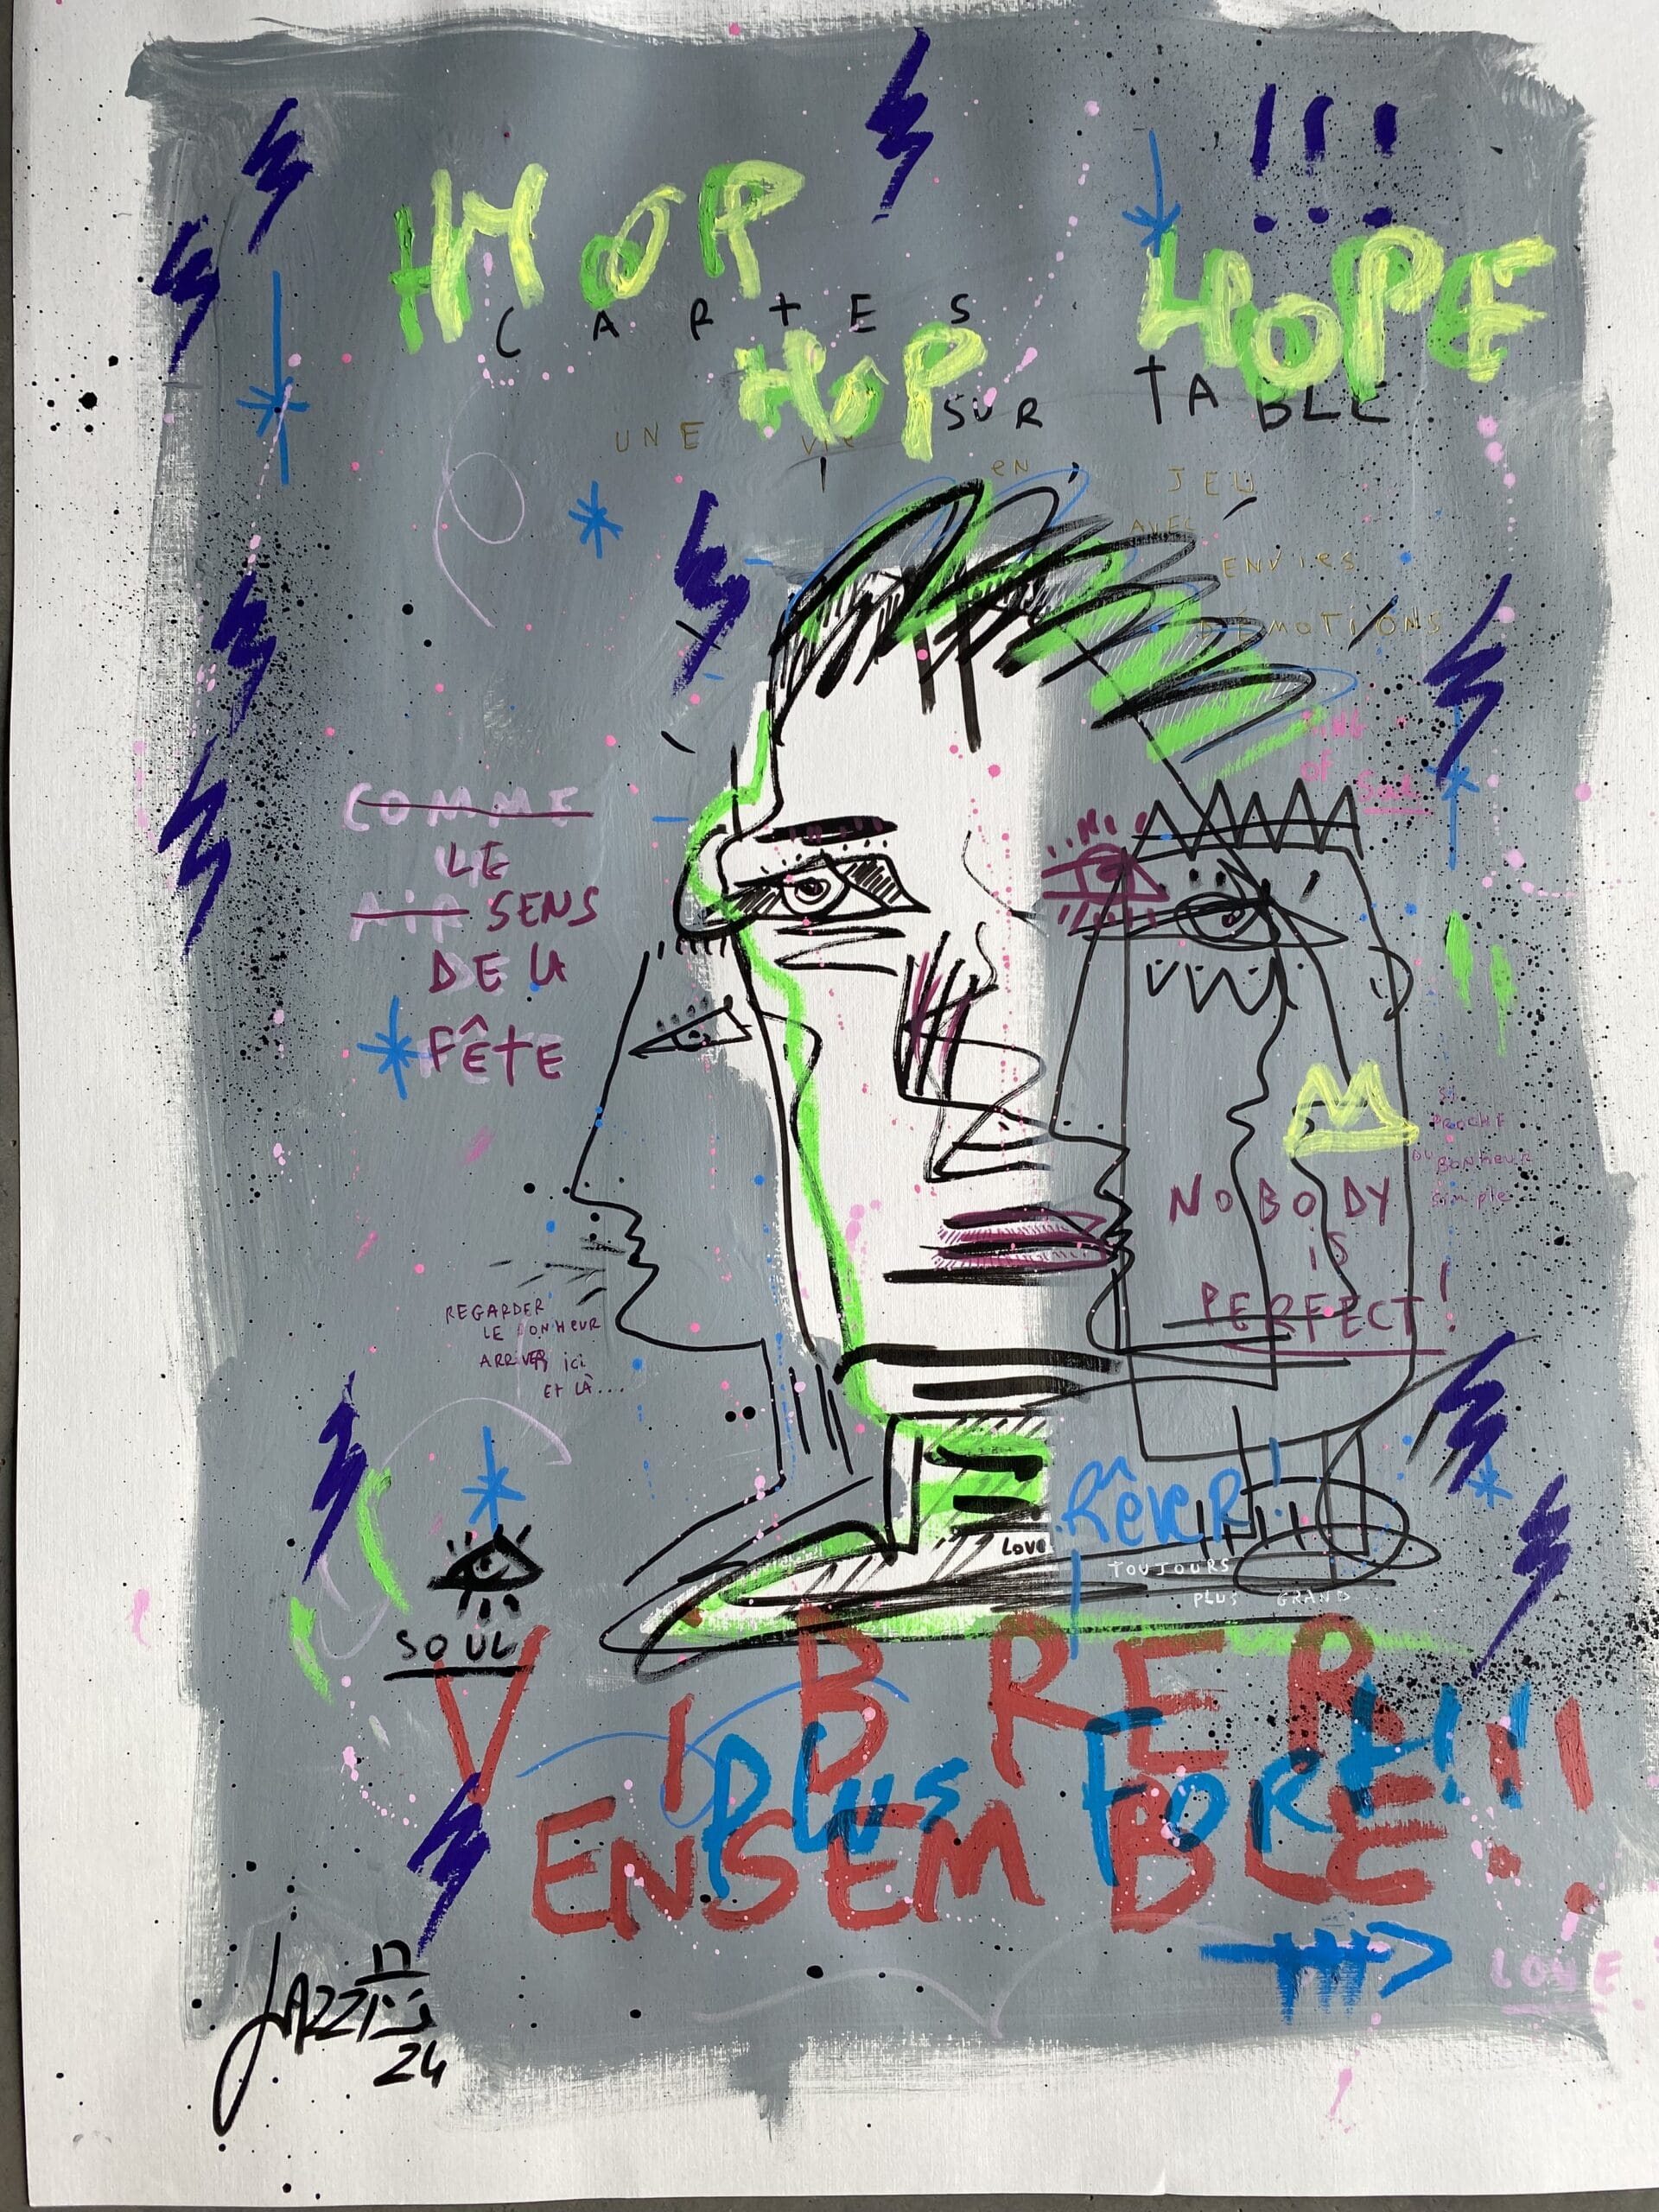 !!!
HOP
HOPE
CARTES
HOP
SUR TABLE
UNE VIE
EN JEU
AVEC
ENVIES
D'ÉMOTIONS
of
Sad
COMME
LE
AIR SENS
DE LA
FÊTE
SI
PROCHE
DU BONHEUR
Simple
NOBODY
IS
PERFECT!
REGARDER
LE BONHEUR
ARRIVER ici
ET LÀ...
RêveR!
LOVE
TOUJOURS
PLUS GRAND
SOUL
VIBRER
PLUS FORT!!!
ENSEMBLE!!
LOVE
JAZZI
24